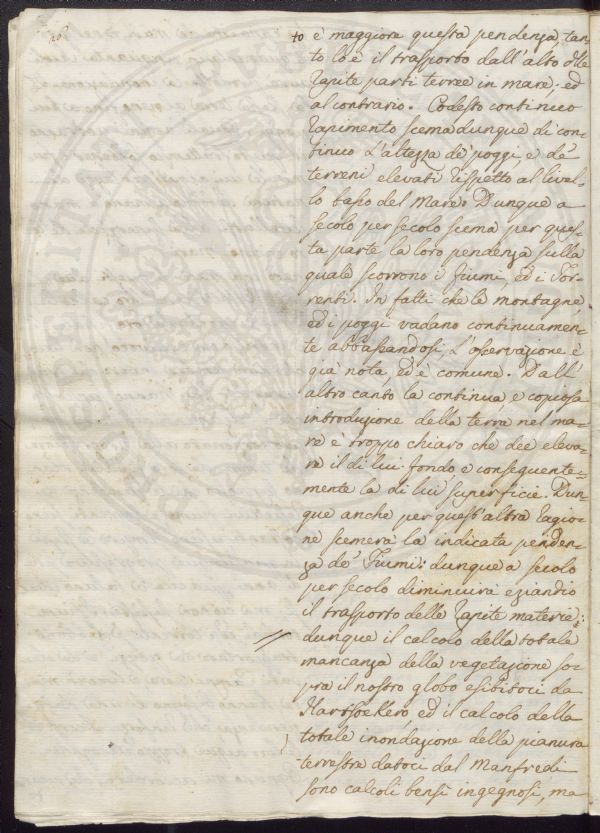 to è maggiore questa pendenza, tan-
to lo è il trasporto dall'alto delle
rapite parti terree in mare; ed
al contrario. Codesto continuo
rapimento scema dunque di con-
tinuo l'altezza de' poggi, e de'
terreni elevati rispetto al livel-
lo basso del Mare. Dunque a
secolo per secolo scema per ques-
ta parte la loro pendenza sulla
quale scorrono i fiumi, ed i Tor-
renti. In fatti che le montagne,
ed i poggi vadano continuamen-
te abbassandosi, l'osservazione è
già nota, ed è comune. Dall'
altro canto la continua, e copiosa
introduzione della terra nel ma-
re è troppo chiaro che dee eleva-
re il di lui fondo e conseguente-
mente la di lui superficie. Dun-
que anche per quest'altra ragio-
ne scemerà la indicata penden-
za de' Fiumi: dunque a secolo
per secolo diminuirà eziandio
il trasporto delle rapite materie:
dunque il calcolo della totale
mancanza della vegetazione so-
pra il nostro globo esibitoci da
Hartsoekero, ed il calcolo della
totale inondazione della pianura
terrestre datoci dal Manfredi
sono calcoli bensì ingegnosi, ma